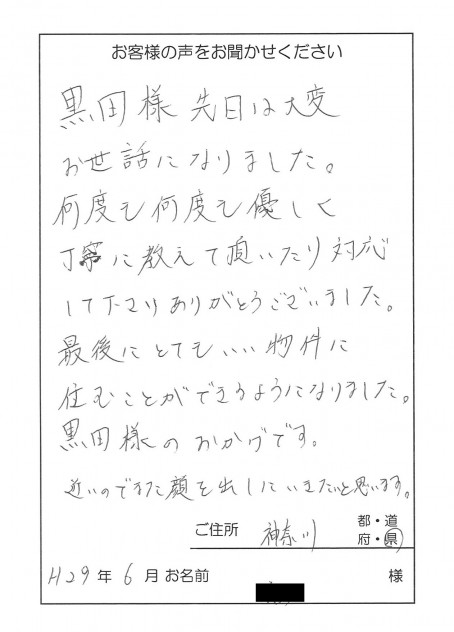 お客様の声をお聞かせください
黒田様 先日は大変
お世話になりました。
何度も何度も優しく
丁寧に教えて頂いたり対応
して下さりありがとうございました。
最後にとてもいい物件に
住むことができるようになりました。
黒田様のおかげです。
近いのでまた顔を出しにいきたいと思います。
ご住所 神奈川 都・道
府・県
H29年 6月 お名前 様